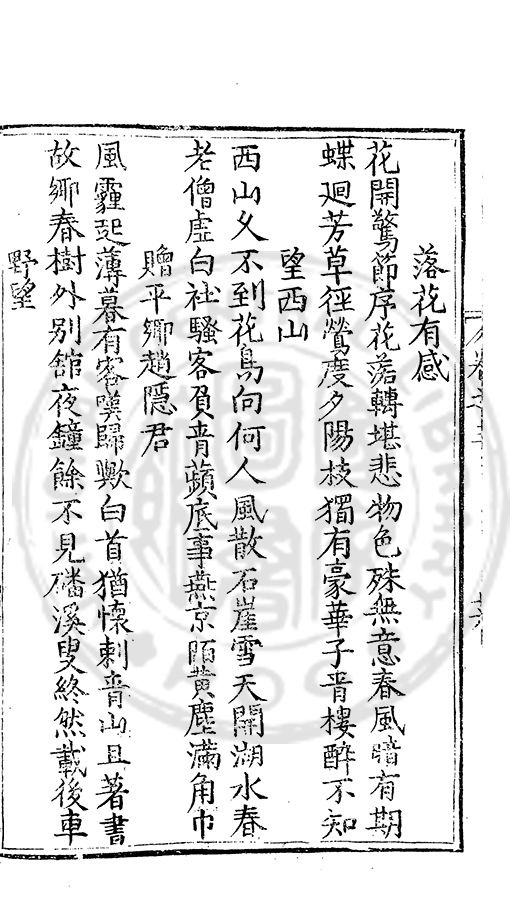 落花有感
花開驚節序花落轉堪悲物色殊無意春風暗有期
蝶廻芳草徑鶯度夕陽枝獨有豪華子青樓醉不知
望西山
西山久不到花鳥向何人風散石崖雪天開湖水春
老僧虛白社騷客負青蘋底事燕京陌黄塵滿角巾
贈平鄉趙隱君
風霾起薄暮有客嘆歸歟白首猶懷刺青山且著書
故鄉春樹外别舘夜鐘餘不見磻溪叟終然載後車
野望